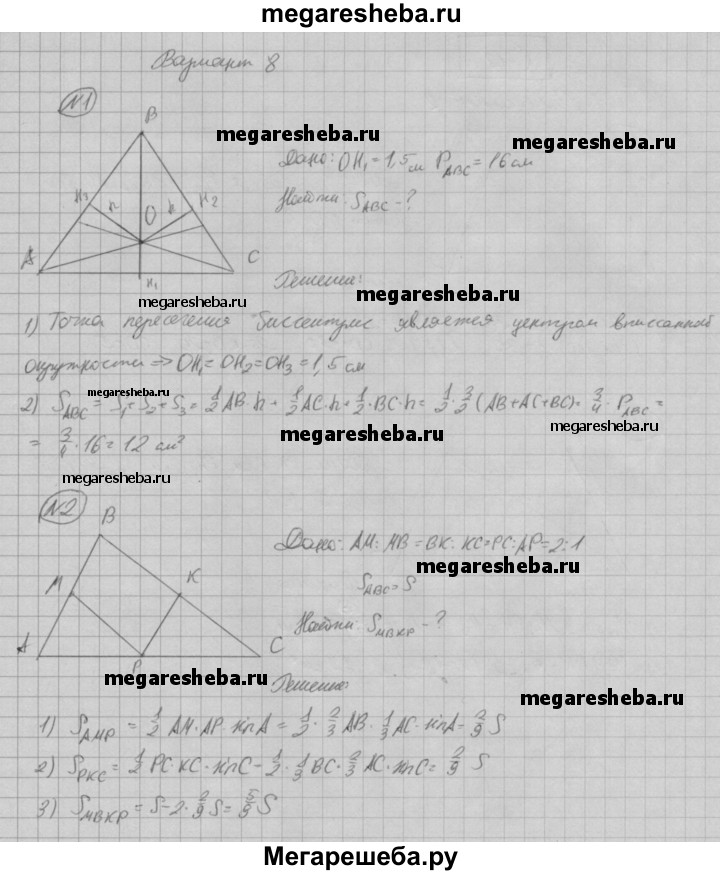 megaresheba.ru
Вариант 8
N1
B
megaresheba.ru
megaresheba.ru
Дано: OH₁ = 1,5 см P_ABC = 16 см
Найти: S_ABC - ?
H₃ h O h H₂
A C
H₁
Решение:
megaresheba.ru
megaresheba.ru
1) Точка пересечения биссектрис является центром вписанной
окружности => OH₁ = OH₂ = OH₃ = 1,5 см
megaresheba.ru
2) S_ABC = S₁ + S₂ + S₃ = 1/2 AB · h + 1/2 AC · h + 1/2 · BC · h = 1/2 · 3/2 (AB + AC + BC) = 3/4 · P_ABC =
megaresheba.ru
megaresheba.ru
= 3/4 · 16 = 12 см²
megaresheba.ru
N2
B
Дано: AM : MB = BK : KC = PC : AP = 2 : 1
megaresheba.ru
S_ABC = S
M K
Найти: S_MBKP - ?
A P C
megaresheba.ru
Решение:
megaresheba.ru
1) S_AMP = 1/2 AM · AP · sin A = 1/2 · 2/3 AB · 1/3 AC · sin A = 2/9 S
2) S_PKC = 1/2 PC · KC · sin C = 1/2 · 1/3 BC · 2/3 AC · sin C = 2/9 S
3) S_MBKP = S - 2 · 2/9 S = 5/9 S
Мегарешеба.ру